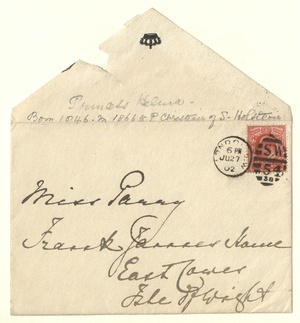 Princess Helena.
Born 1846. m 1866 to P. Christian of S- Holstein
LONDON S.W
6 PM
JU 27
02
S.W
54
38
Miss Parry
Home
East Cowes
Isle of Wight